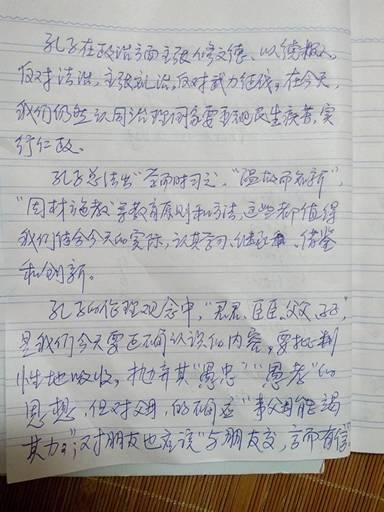 孔子在政治方面主张修文德、以德报人,
反对法治,主张礼治,反对武力征伐。在今天,
我们仍然认同治理国家要重视民生疾苦,实
行仁政。
孔子总结出"学而时习之","温故而知新",
"因材施教"等教育原则和方法,这些都值得
我们结合今天的实际,认真学习、继承、借鉴
和创新。
孔子的伦理观念中,"君君、臣臣、父父、子子",
是我们今天要正确认识的内容。要批判
性地吸收,抛弃其"愚忠""愚孝"的
思想,但对父母,的确应"事父母能竭
其力";对朋友也应该"与朋友交,言而有信"